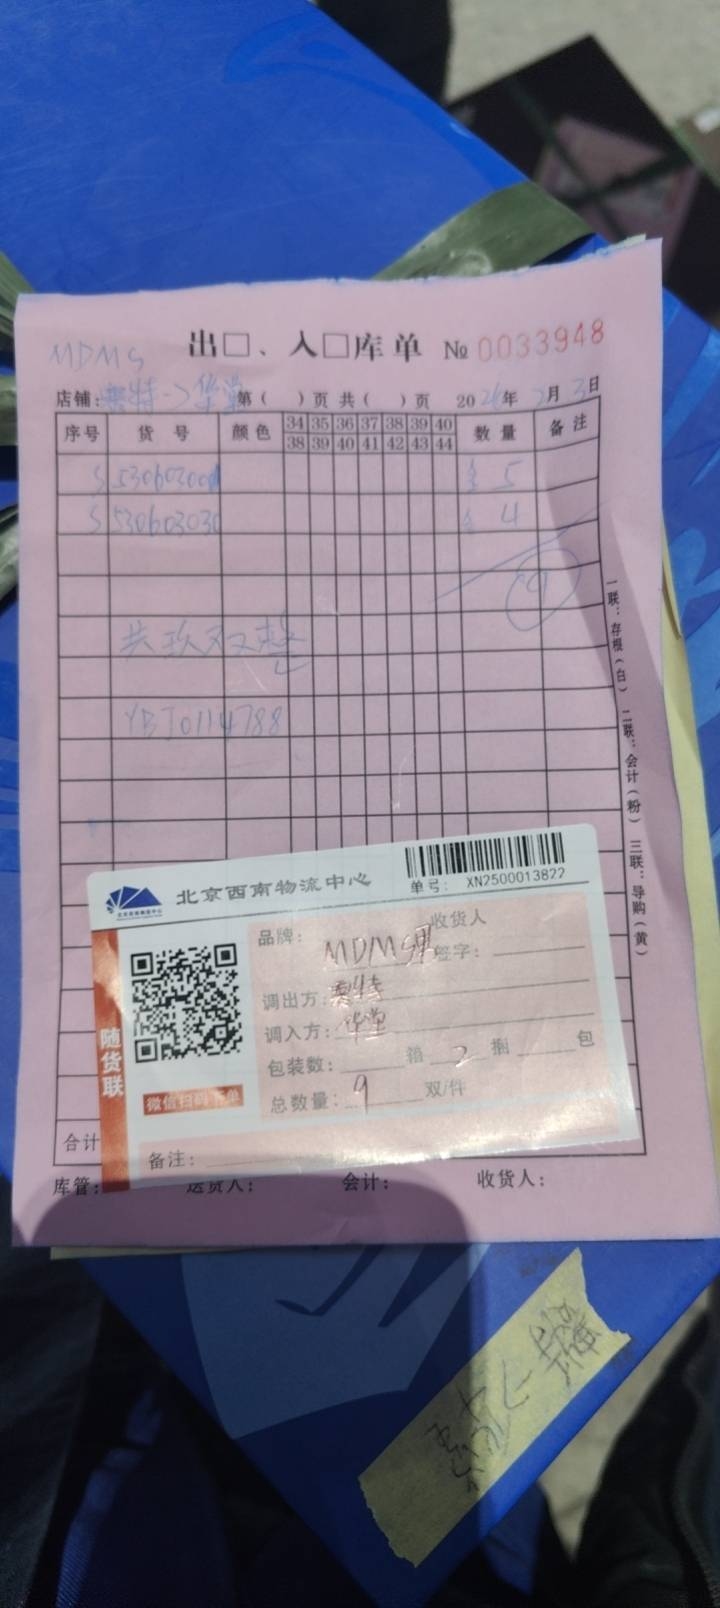 MDMS
出□、入□库单 № 0033948
店铺: 赛特->华堂 第( )页 共( )页 20 年 月 3日
序号 货号 颜色 34 35 36 37 38 39 40 数量 备注
38 39 40 41 42 43 44
S 530602001 5
S 530603030 4
9
共玖双整
YBJ0114788
一联:存根(白) 二联:会计(粉) 三联:导购(黄)
北京西南物流中心 单号: XN2500013822
品牌: MDMS男 收货人签字:
调出方: 赛特
调入方: 华堂
包装数: 箱 2 捆 包
总数量: 9 双/件
随货联
微信扫码下单
备注:
合计
库管: 送货人: 会计: 收货人: